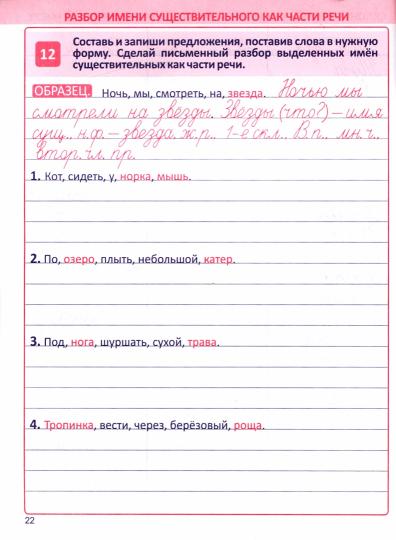 РАЗБОР ИМЕНИ СУЩЕСТВИТЕЛЬНОГО КАК ЧАСТИ РЕЧИ
12
Составь и запиши предложения, поставив слова в нужную
форму. Сделай письменный разбор выделенных имён
существительных как части речи.
ОБРАЗЕЦ. Ночь, мы, смотреть, на, звезда. Ночью мы
смотрели на звёзды. Звёзды (что?) – имя
сущ., н.ф. – звезда ж.р., 1-е скл., В.п., мн.ч.,
втор. чл. пр.
1. Кот, сидеть, у, норка, мышь.
2. По, озеро, плыть, небольшой, катер.
3. Под, нога, шуршать, сухой, трава.
4. Тропинка, вести, через, берёзовый, роща.
22